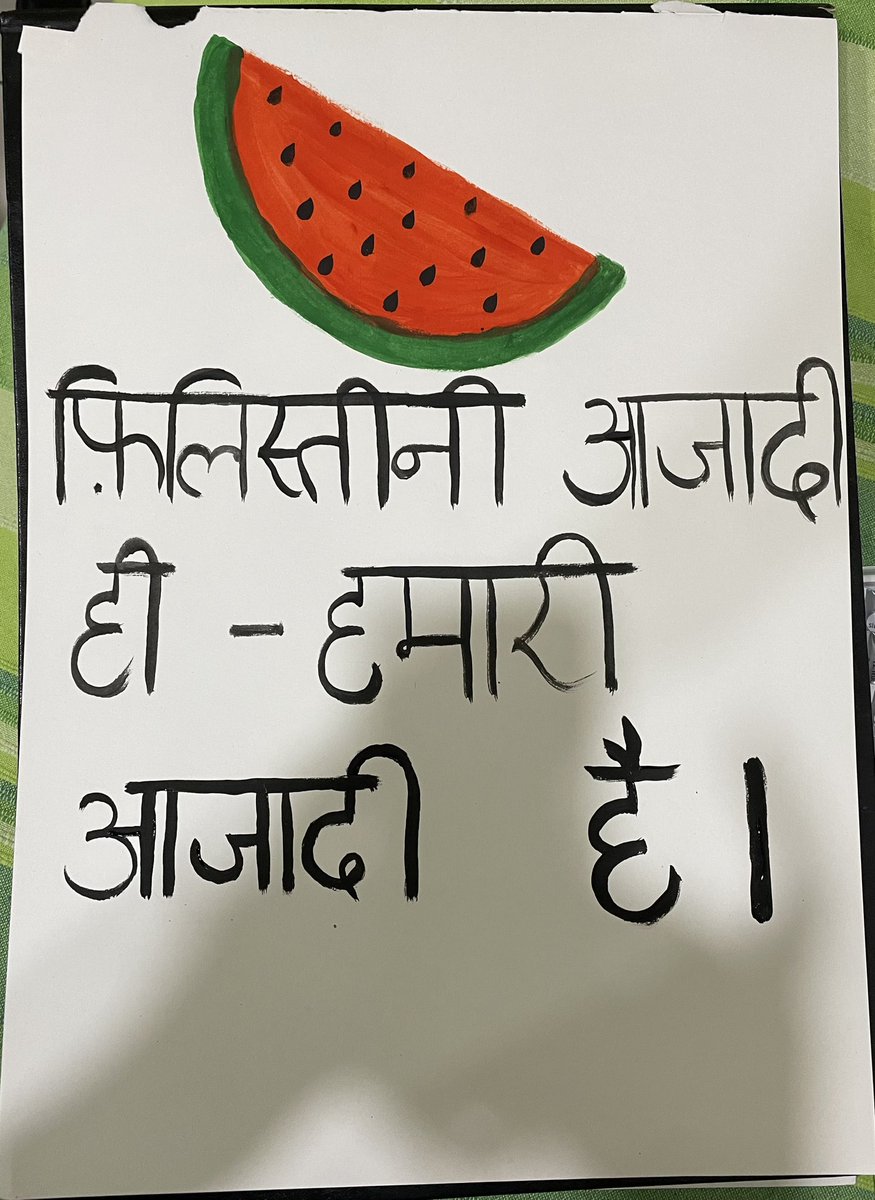 फ़िलिस्तीनी आजादी
ही - हमारी
आजादी है।